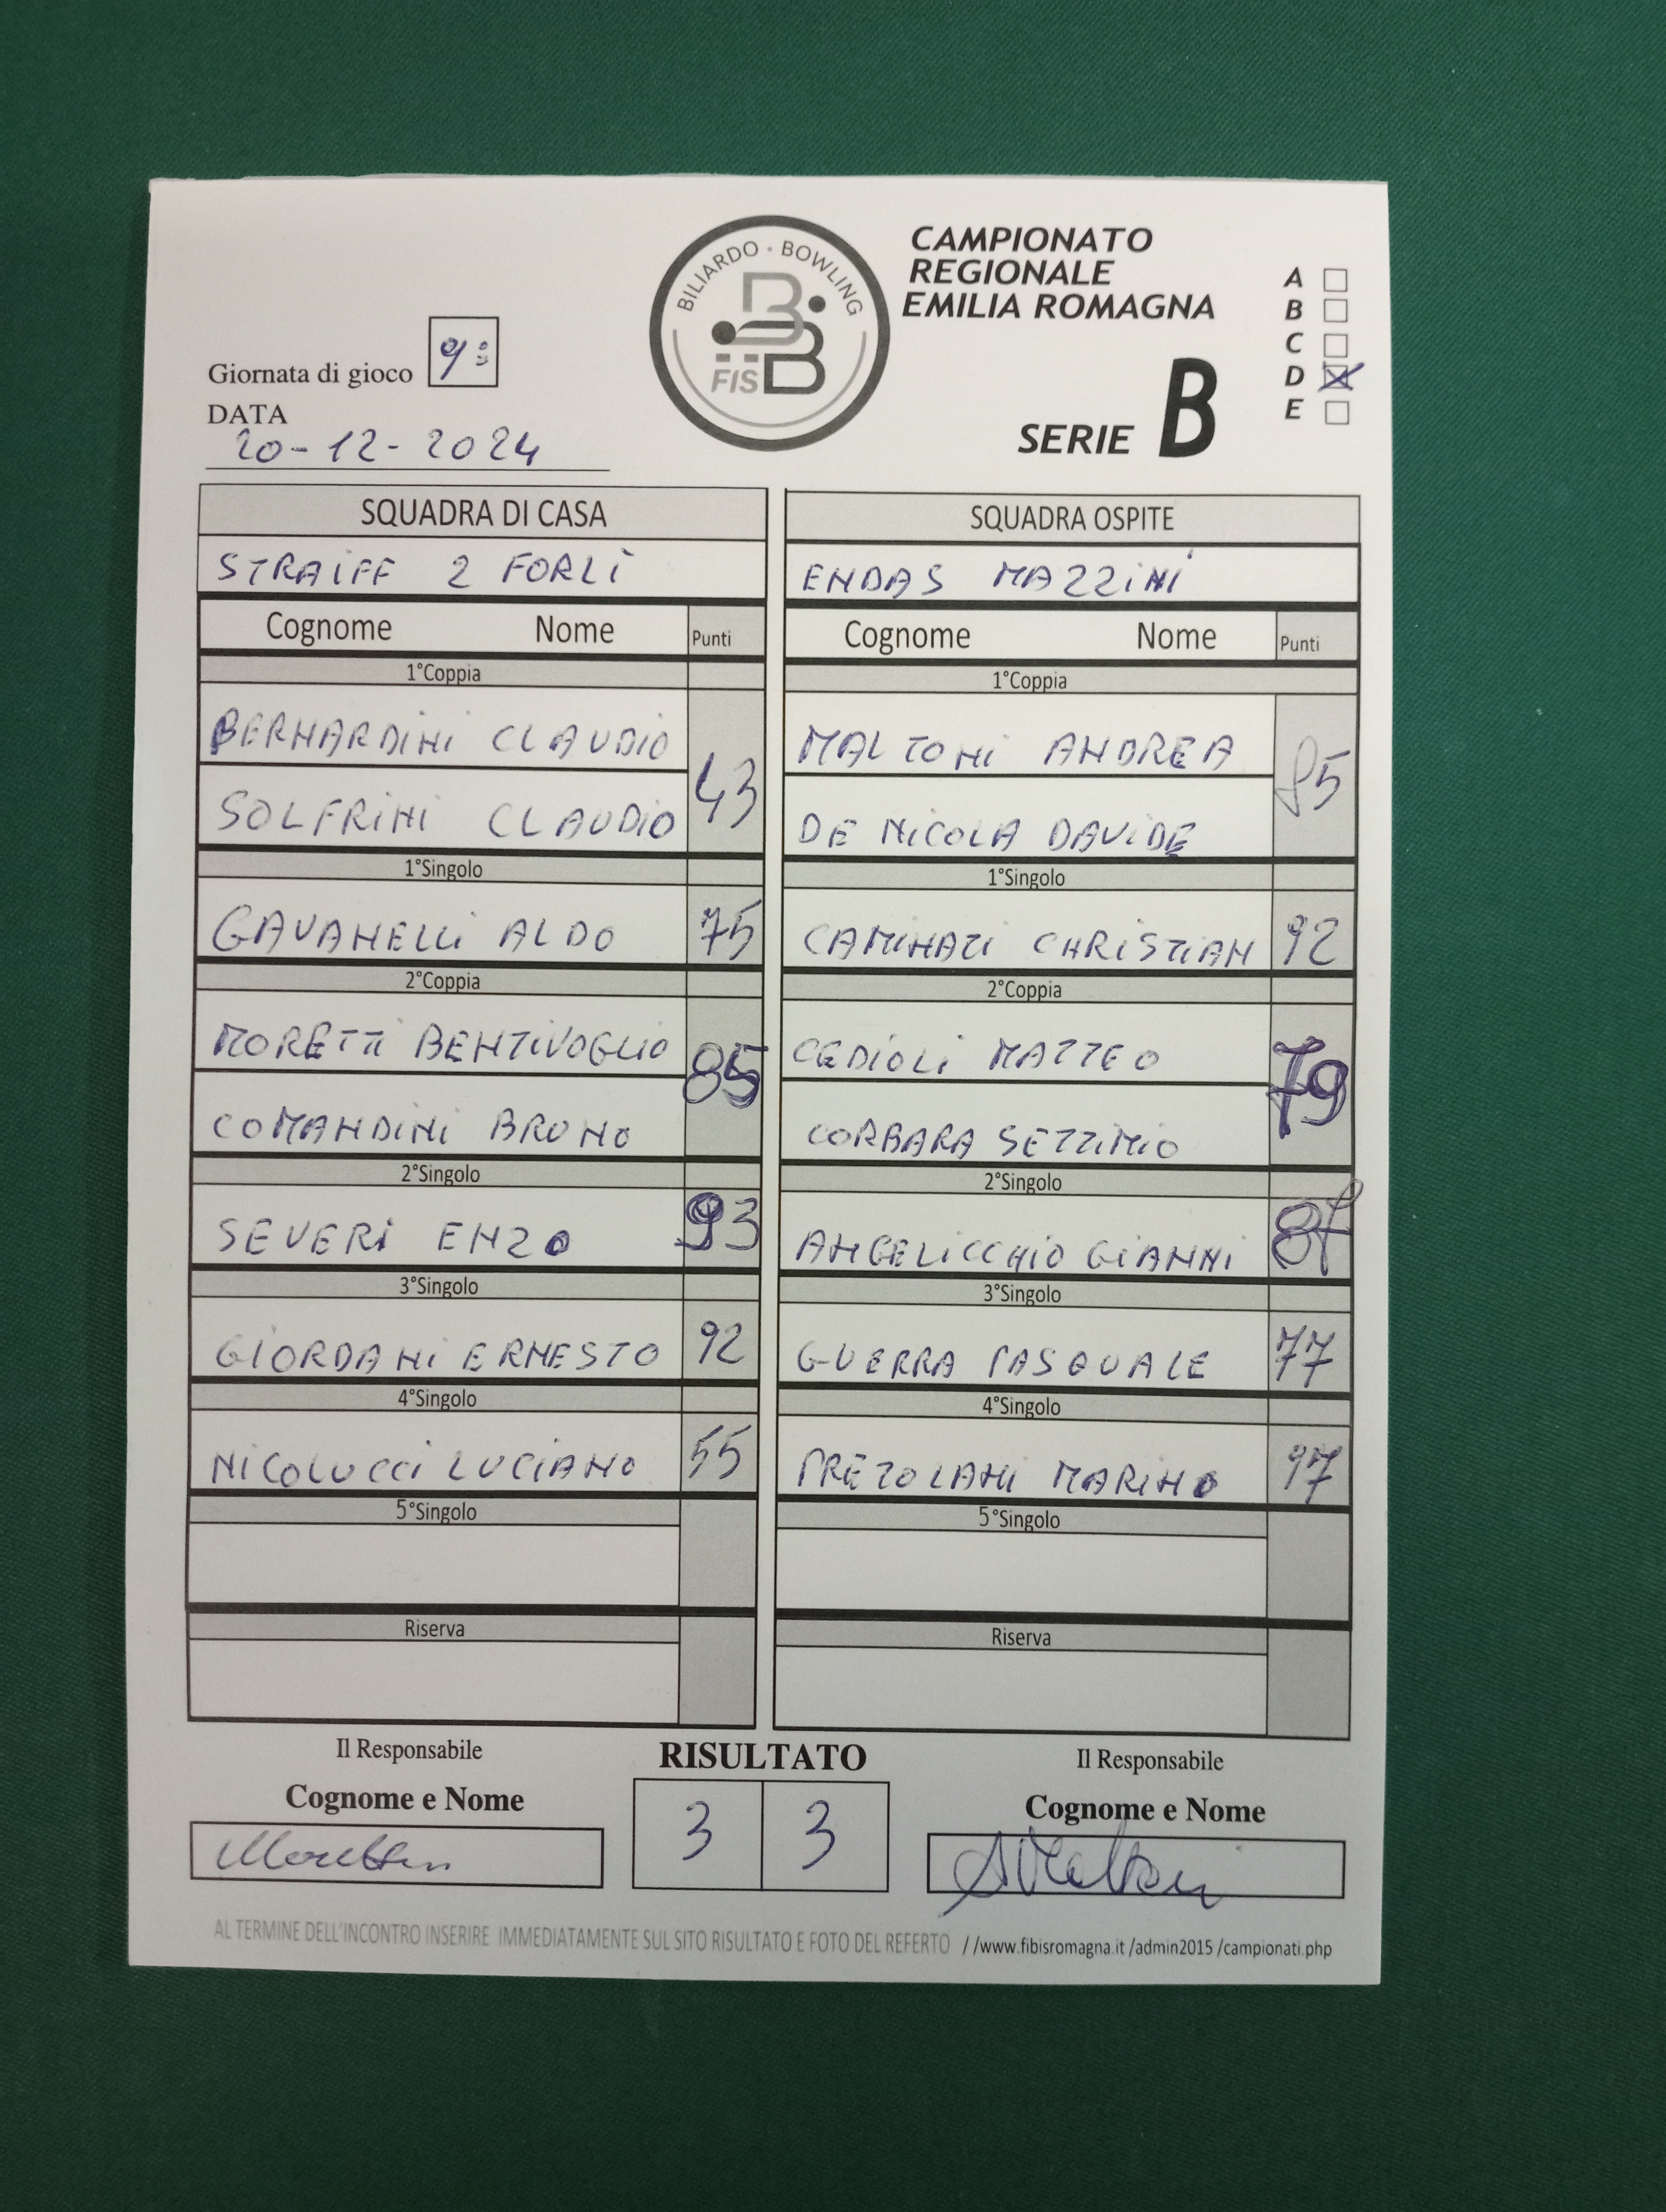 BILIARDO - BOWLING
FISBB
CAMPIONATO
REGIONALE
EMILIA ROMAGNA
SERIE B
A
B
C
D
E
Giornata di gioco 9ª
DATA
20-12-2024
SQUADRA DI CASA
STRAIFF 2 FORLÌ
Cognome Nome Punti
1°Coppia
BERNARDINI CLAUDIO
SOLFRINI CLAUDIO
43
1°Singolo
GAVANELLI ALDO 75
2°Coppia
MORETTI BENTIVOGLIO
COMANDINI BRUNO
85
2°Singolo
SEVERI ENZO 93
3°Singolo
GIORDANI ERNESTO 92
4°Singolo
NICOLUCCI LUCIANO 55
5°Singolo
Riserva
SQUADRA OSPITE
ENDAS MAZZINI
Cognome Nome Punti
1°Coppia
MALTONI ANDREA
DE NICOLA DAVIDE
85
1°Singolo
CAMINATI CHRISTIAN 92
2°Coppia
CEDIOLI MATTEO
CORBARA SETTIMIO
79
2°Singolo
ANGELICCHIO GIANNI
3°Singolo
GUERRA PASQUALE 77
4°Singolo
PREZOLANI MARINO 97
5°Singolo
Riserva
Il Responsabile
Cognome e Nome
RISULTATO
3 3
Il Responsabile
Cognome e Nome
AL TERMINE DELL'INCONTRO INSERIRE IMMEDIATAMENTE SUL SITO RISULTATO E FOTO DEL REFERTO //www.fibisromagna.it /admin2015 /campionati.php